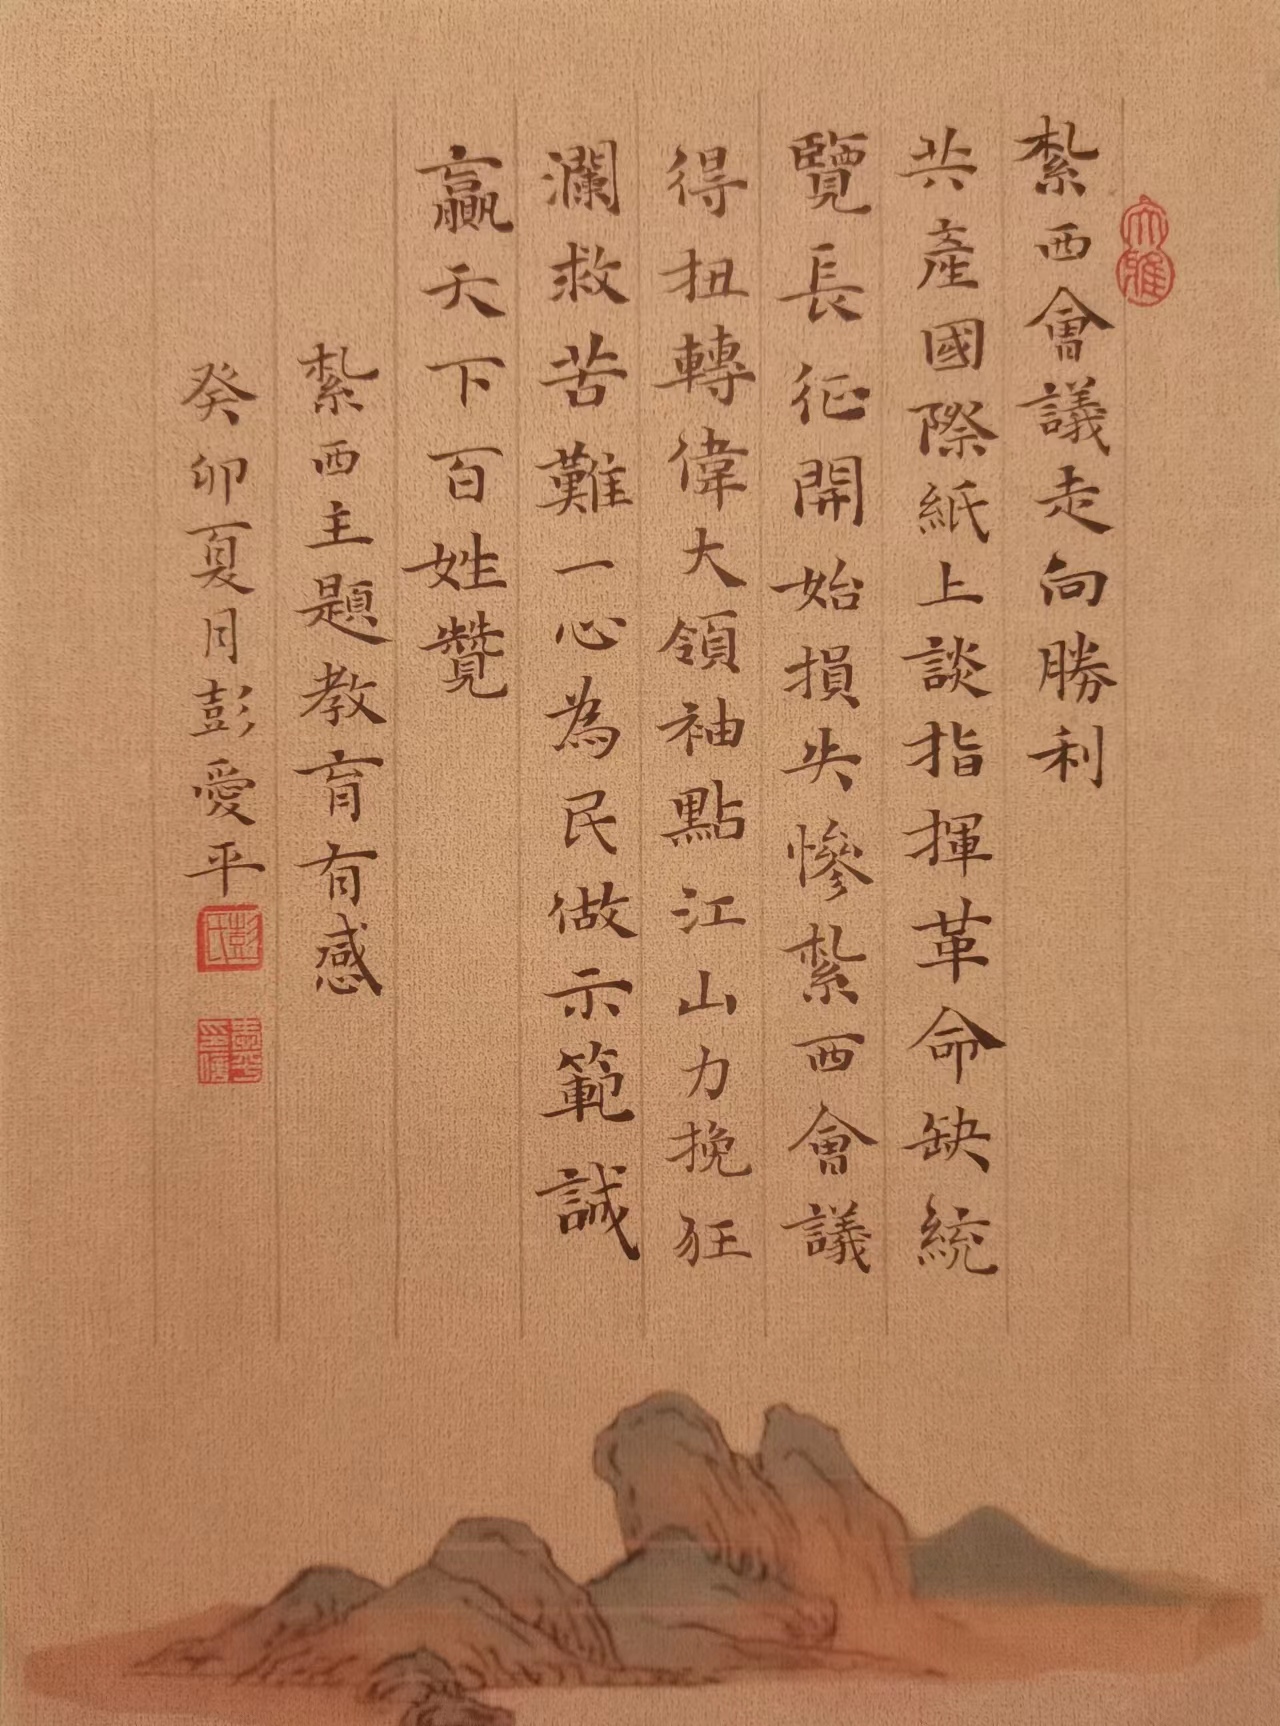 大雅
紮西會議走向勝利
共產國際紙上談指揮革命缺統
覽長征開始損失慘紮西會議
得扭轉偉大領袖點江山力挽狂
瀾救苦難一心為民做示範誠
贏天下百姓贊
紮西主題教育有感
癸卯夏月彭愛平
彭氏